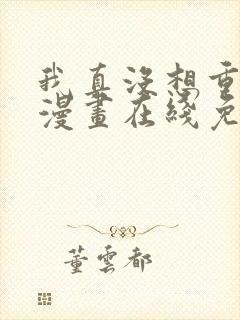 我真没想重
漫畫在綫免
董雲都